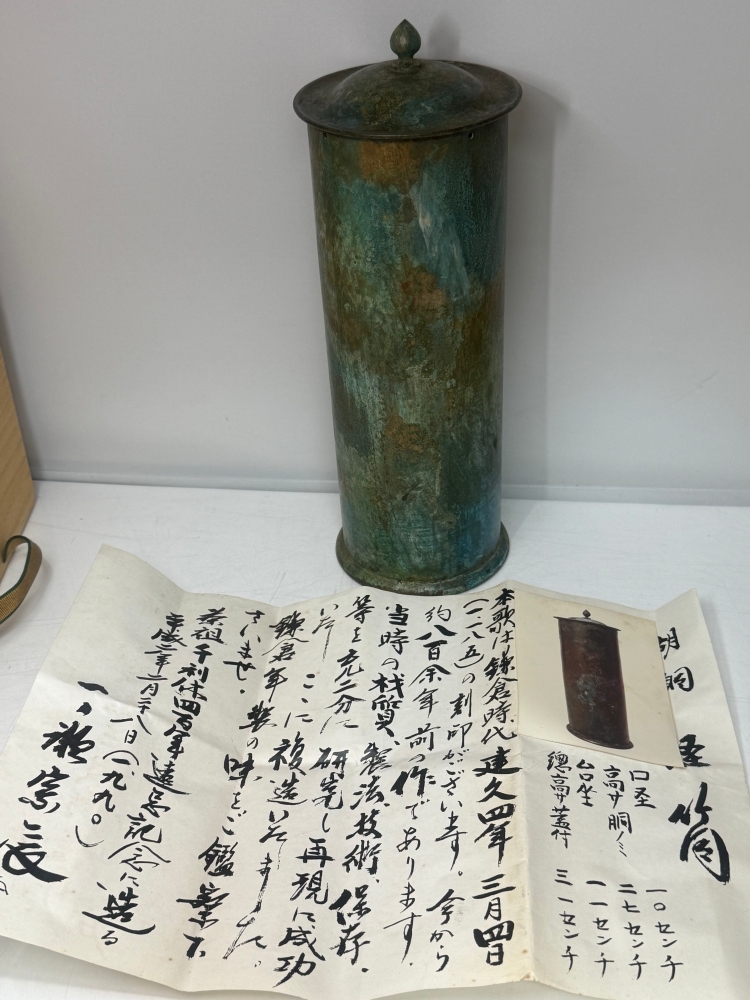 胡銅 経筒
口径 一〇センチ
高サ胴ノミ 二七センチ
台坐 一一センチ
總高サ蓋付 三一センチ
本歌は鎌倉時代建久四年三月四日
(一一八五)の刻印がございます。今から
約八百余年前の作であります。
当時の材質、製法、技術、保存、
等を充二分に研究し再現に成功
いたし ここに複造いたしました。
鎌倉年製の味をご鑑案下
さいませ。
茶祖千利休四百年遠忌記念に造る
平成二年二月二十八日(一九九〇)
一ノ瀬宗